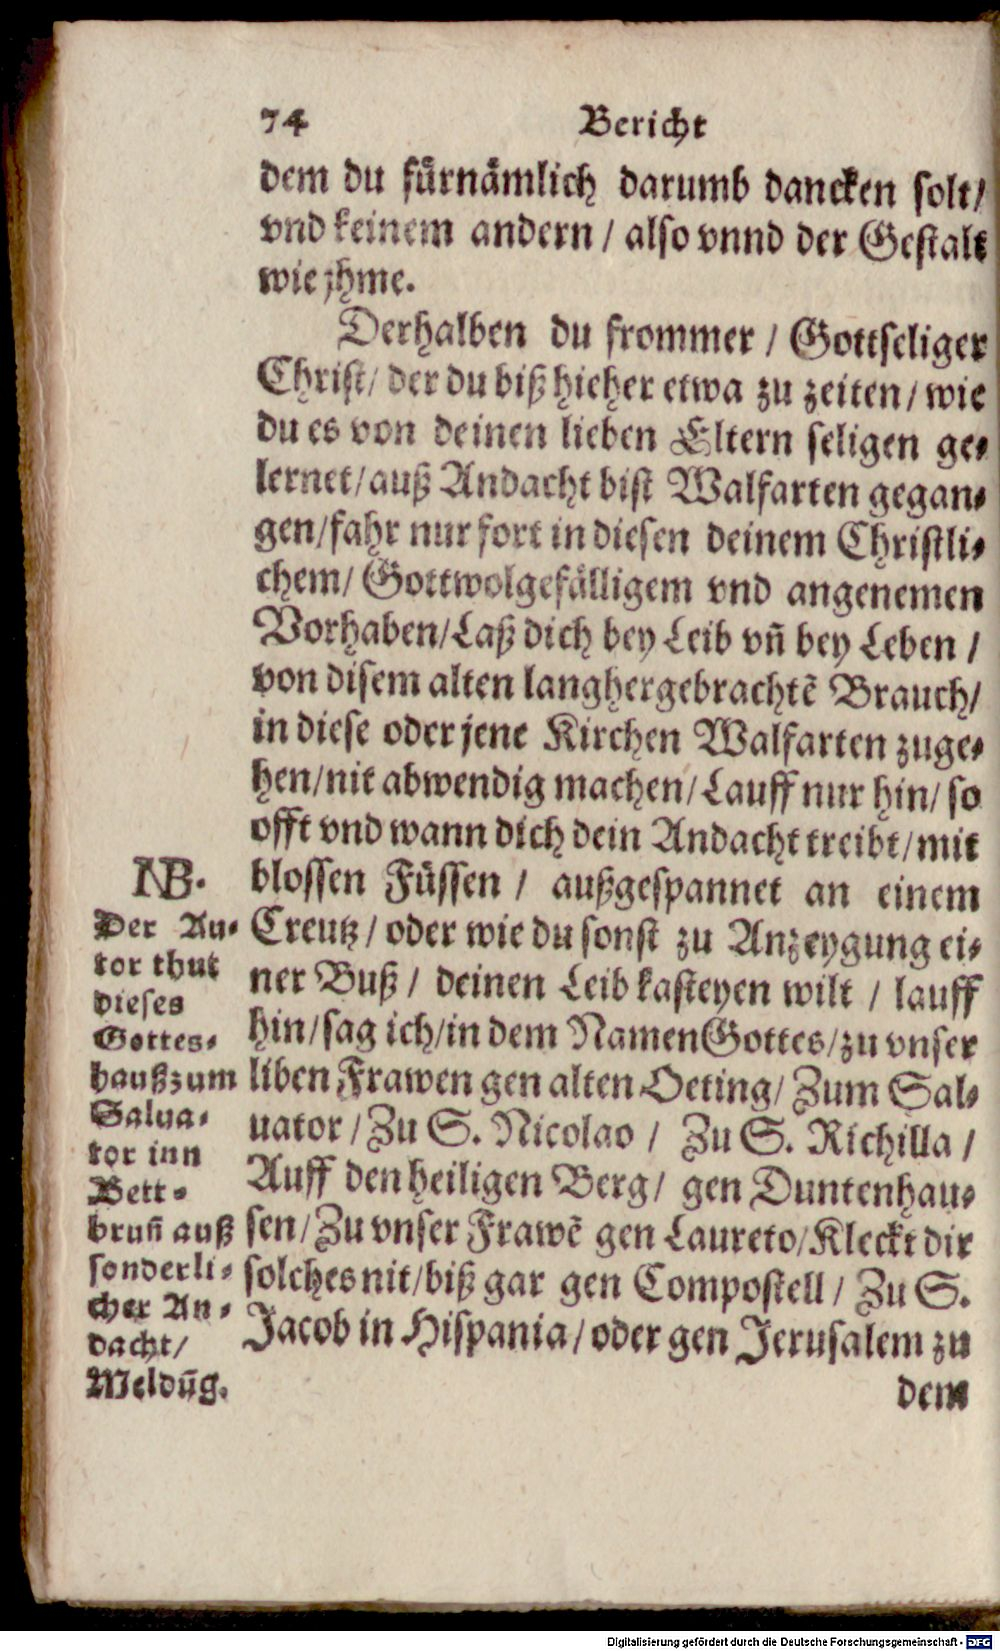 74 Bericht
dem du fürnämlich darumb dancken solt/
vnd keinem andern / also vnnd der Gestalt
wie jhme.
Derhalben du frommer / Gottseliger
Christ/ der du biß hieher etwa zu zeiten/ wie
du es von deinen lieben Eltern seligen ge-
lernet/ auß Andacht bist Walfarten gegan-
gen/ fahr nur fort in diesen deinem Christli-
chem/ Gottwolgefälligem vnd angenemen
Vorhaben/ Laß dich bey Leib vñ bey Leben /
von disem alten langhergebrachtẽ Brauch/
in diese oder jene Kirchen Walfarten zuge-
hen/ nit abwendig machen/ Lauff nur hin/ so
offt vnd wann dich dein Andacht treibt/ mit
blossen Füssen / außgespannet an einem
Creutz/ oder wie du sonst zu Anzeygung ei-
ner Buß / deinen Leib kasteyen wilt / lauff
hin/ sag ich/ in dem Namen Gottes/ zu vnser
liben Frawen gen alten Oeting/ Zum Sal-
uator / Zu S. Nicolao / Zu S. Richilla /
Auff den heiligen Berg/ gen Duntenhau-
sen/ Zu vnser Frawẽ gen Laureto/ Kleckt dir
solches nit/ biß gar gen Compostell / Zu S.
Jacob in Hispania/ oder gen Jerusalem zu
dem
NB.
Der Au-
tor thut
dieses
Gottes-
hauß zum
Salua-
tor inn
Bett-
bruñ auß
sonderli-
cher An-
dacht/
Meldũg.
Digitalisierung gefördert durch die Deutsche Forschungsgemeinschaft - DFG